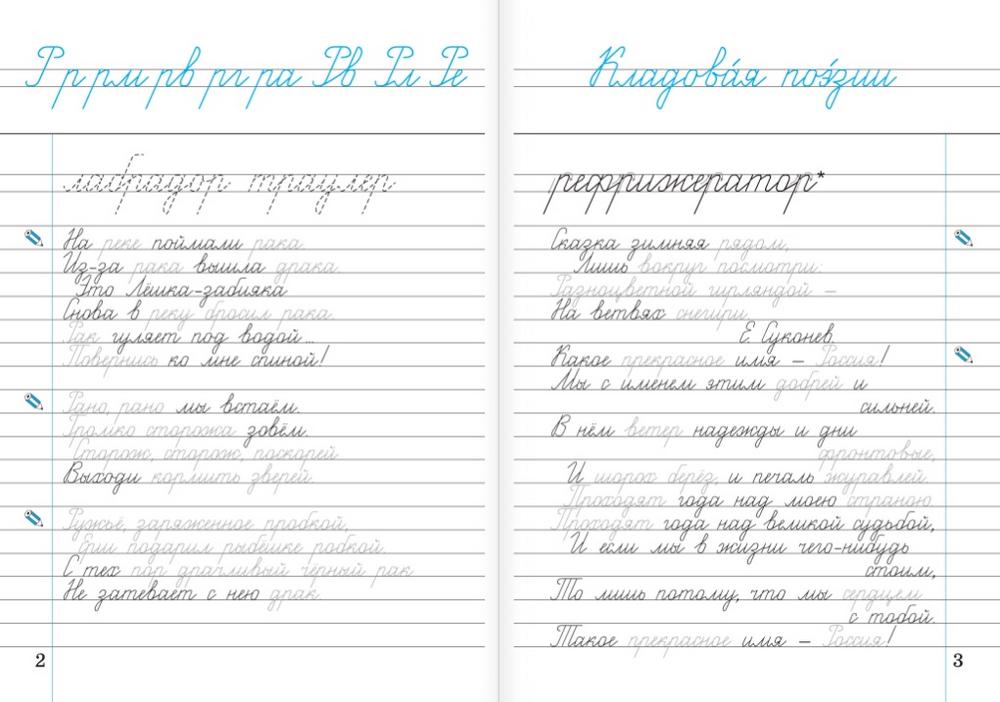 Р р рм рв рг ра Рв Рл Ре
лабрадор траулер
На реке поймали рака.
Из-за рака вышла драка.
Это Лёшка-забияка
Снова в реку бросил рака.
Рак гуляет под водой...
Повернись ко мне спиной!
Рано, рано мы встаём.
Громко сторожа зовём.
Сторож, сторож, поскорей
Выходи кормить зверей.
Ружьё, заряженное пробкой,
Ёрш подарил рыбёшке робкой.
С тех пор драчливый чёрный рак
Не затевает с нею драк.
2
Кладова́я поэ́зии
рефрижератор*
Сказка зимняя рядом,
Лишь вокруг посмотри:
Разноцветной гирляндой –
На ветвях снегири.
Е. Суконев.
Какое прекрасное имя – Россия!
Мы с именем этим добрей и
сильней.
В нём ветер надежды и дни
фронтовые,
И шорох берёз, и печаль журавлей.
Проходят года над моею страною
Проходят года над великой судьбой,
И если мы в жизни чего-нибудь
стоим,
То лишь потому, что мы сердцем
с тобой.
Такое прекрасное имя – Россия!
3